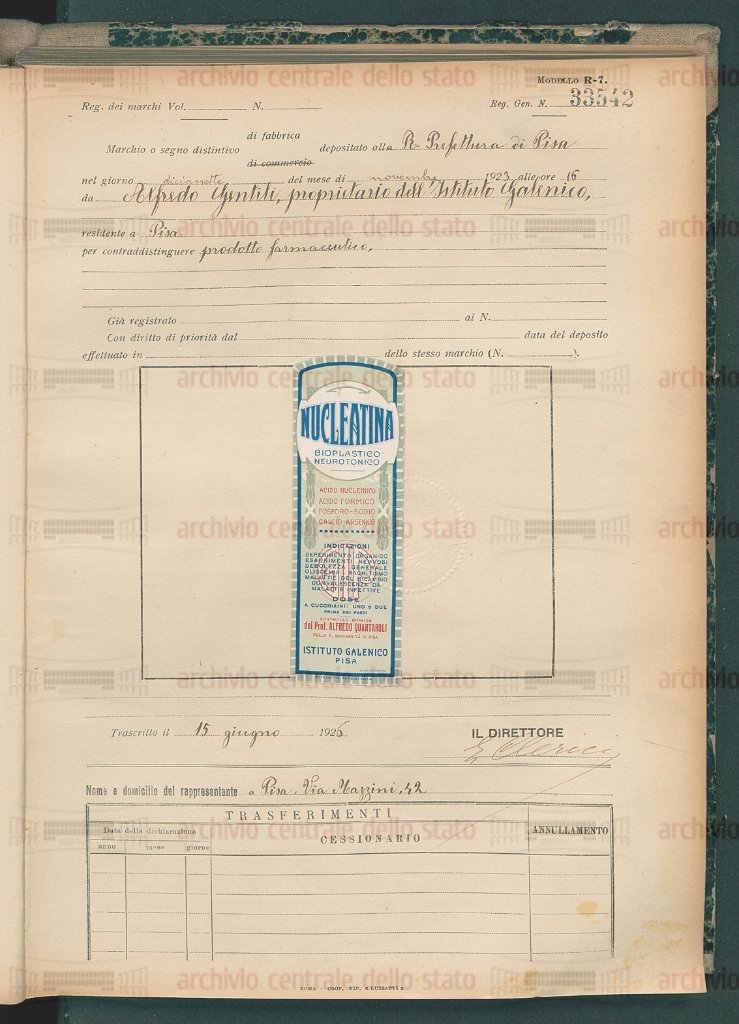 Modello R-7.
Reg. dei marchi Vol. N. Reg. Gen. N. 33542
di fabbrica
Marchio o segno distintivo depositato alla R. Prefettura di Pisa
di commercio
nel giorno diciassette del mese di novembre 1923 alle ore 16
da Alfredo Gentili, proprietario dell'Istituto Galenico,
residente a Pisa
per contraddistinguere prodotto farmaceutico.
Già registrato al N.
Con diritto di priorità dal data del deposito
effettuato in dello stesso marchio (N. ).
NUCLEATINA
BIOPLASTICO
NEUROTONICO
ACIDO NUCLEINICO
ACIDO FORMICO
FOSFORO-SODIO
CALCIO-ARSENICO
INDICAZIONI
DEPERIMENTO ORGANICO
ESAURIMENTI NERVOSI
DEBOLEZZA GENERALE
OLIGOEMIA RACHITISMO
MALATTIE DEL RICAMBIO
CONVALESCENZA DA
MALATTIE INFETTIVE
DOSE
A CUCCHIAINI: UNO O DUE
PRIMA DEI PASTI
CONTROLLO CHIMICO
del Prof. ALFREDO QUARTAROLI
DELLA R. UNIVERSITÀ DI PISA
ISTITUTO GALENICO
PISA
Trascritto il 15 giugno 1926 IL DIRETTORE
Nome e domicilio del rappresentante a Pisa, Via Mazzini, 42
TRASFERIMENTI
Data della dichiarazione CESSIONARIO ANNULLAMENTO
anno mese giorno
ROMA - COOP. TIP. « LUZZATTI »
archivio centrale dello stato